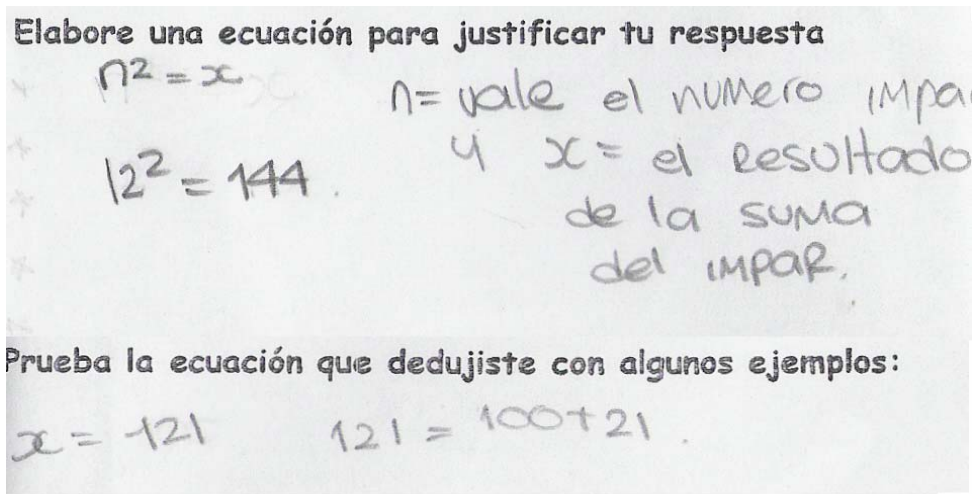 Elabore una ecuación para justificar tu respuesta
n² = x
n = vale el numero impa
12² = 144.
y x = el Resultado
de la suma
del impar.
Prueba la ecuación que dedujiste con algunos ejemplos:
x = 121 121 = 100+21.